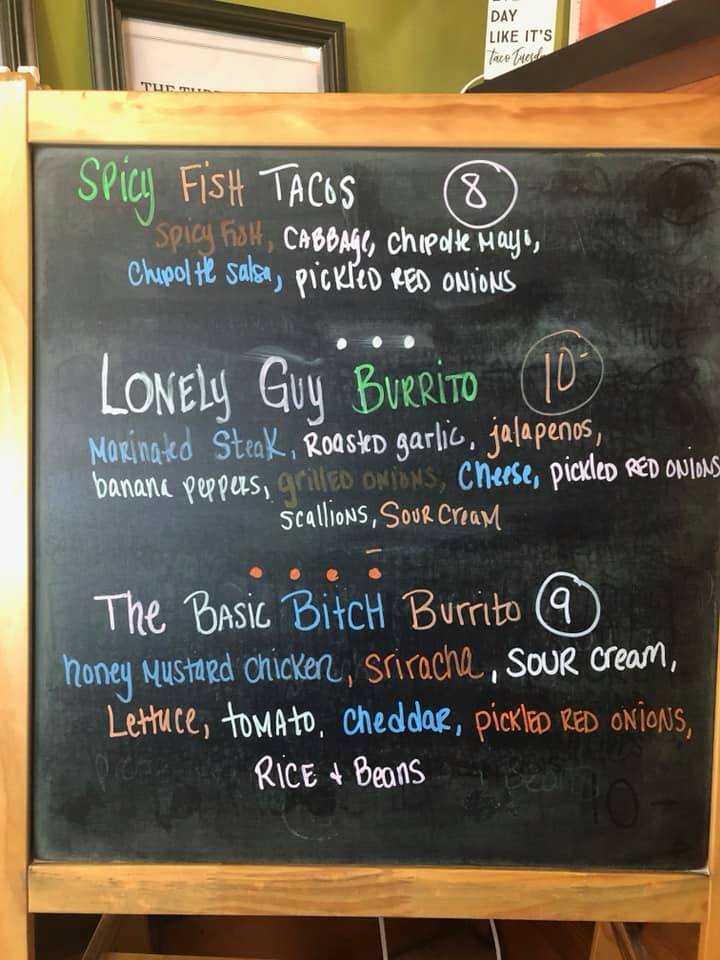 DAY
LIKE IT'S
taco Tuesda
THE
Spicy FisH TACOS 8
Spicy FisH, CABBAGE, Chipotle Mayo,
Chipolte Salsa, pickled RED ONIONS
LONELY GUY BURRITO 10-
Marinated Steak, Roasted garlic, jalapenos,
banana peppers, grilled onions, Cheese, pickled RED ONIONS
scallions, Sour Cream
The BASIC BitcH Burrito 9
honey Mustard Chicken, Sriracha, SOUR Cream,
Lettuce, tomato, Cheddar, pickled RED ONIONS,
RICE + Beans
10-